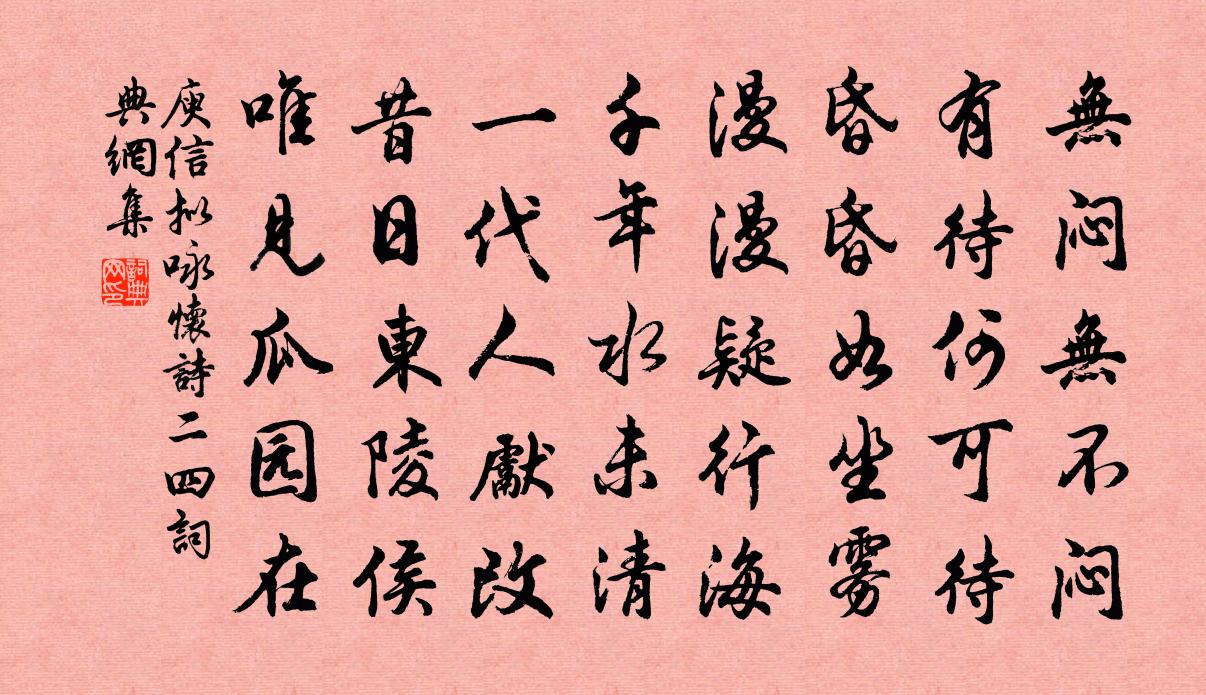 無闷無不闷
有待何可待
昏昏如坐雾
漫漫疑行海
千年水未清
一代人獻改
昔日東陵侯
唯見瓜园在
庾信拟咏懷詩二四詞
典網集
詞典网印